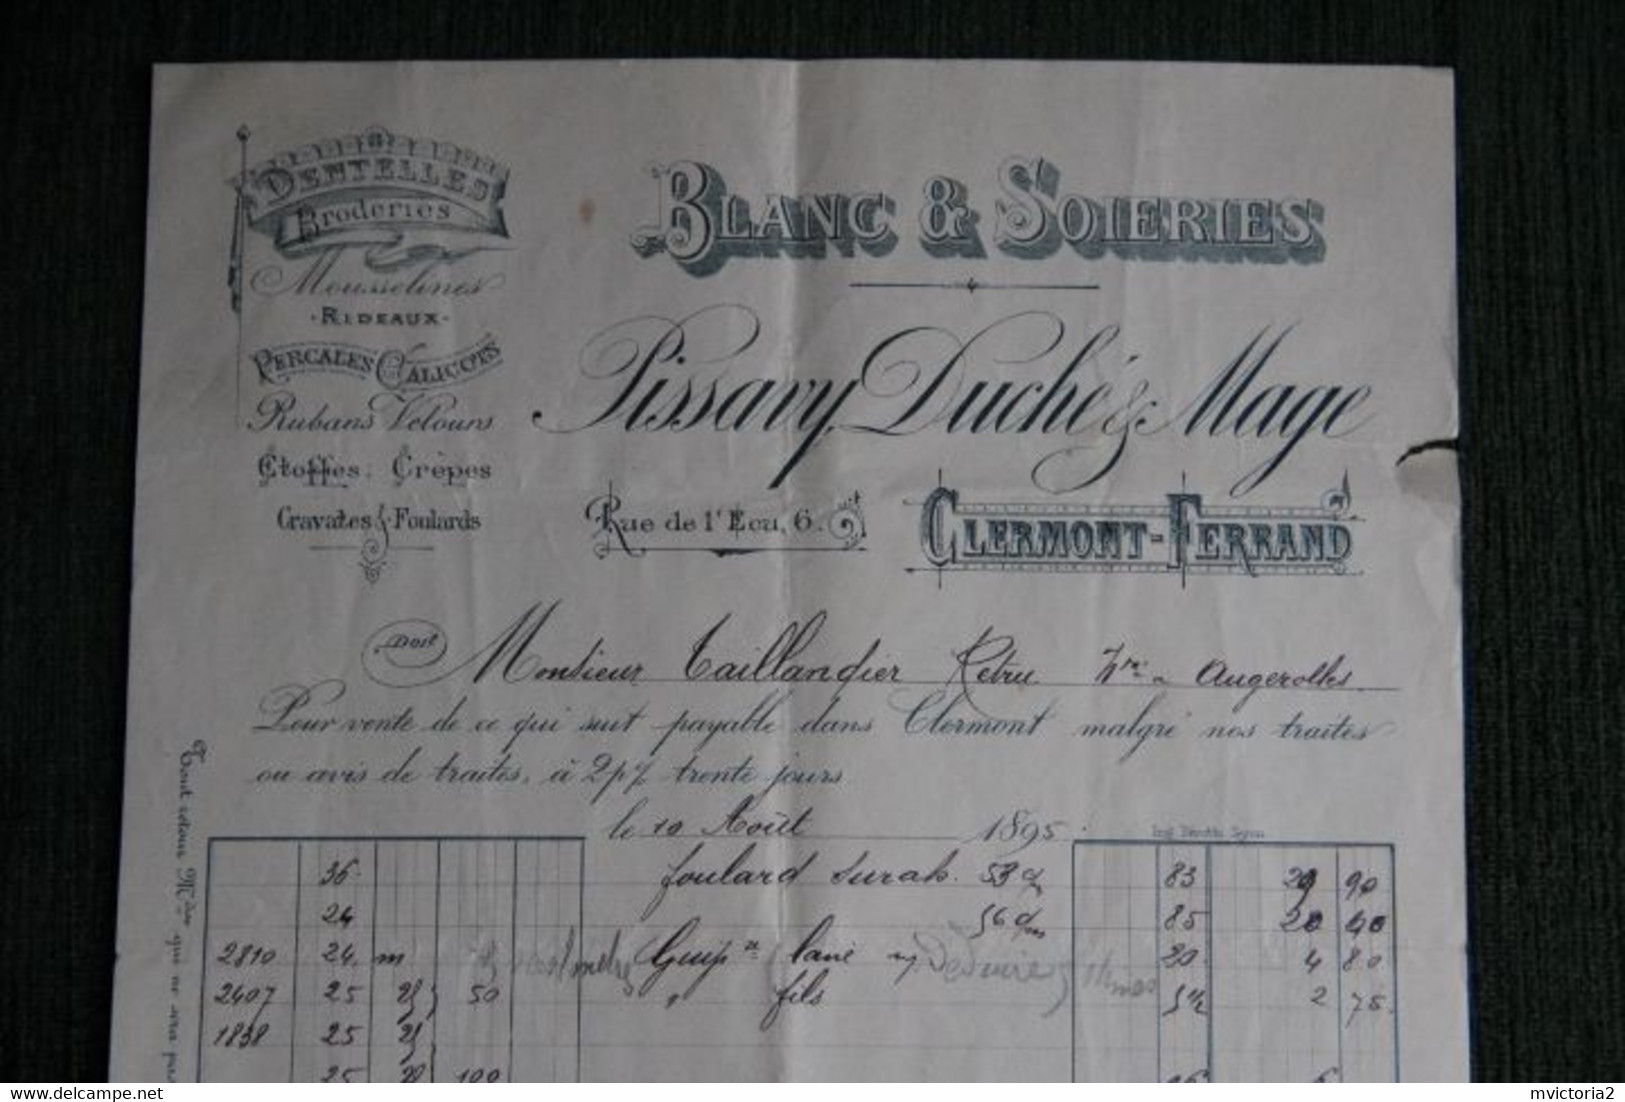 DENTELLES
Broderies
Mousselines
RIDEAUX
PERCALES CALICOTS
Rubans Velours
Etoffes, Crèpes
Cravates & Foulards
BLANC & SOIERIES
Pissavy, Duché & Mage
Rue de l'Ecu, 6.
CLERMONT-FERRAND
Doit Monsieur Taillandier à Augerolles
Pour vente de ce qui suit payable dans Clermont malgré nos traites
ou avis de traites, à 2p% trente jours
le 10 Août 1895
36 foulard surah. 53 83 29 90
24 56 85 20 40
2810 24. m Guip re laine 20 4 80
2407 25 50 " fils 5 1/2 2 75
1838 25
25 100
Tout retour
mvictoria2